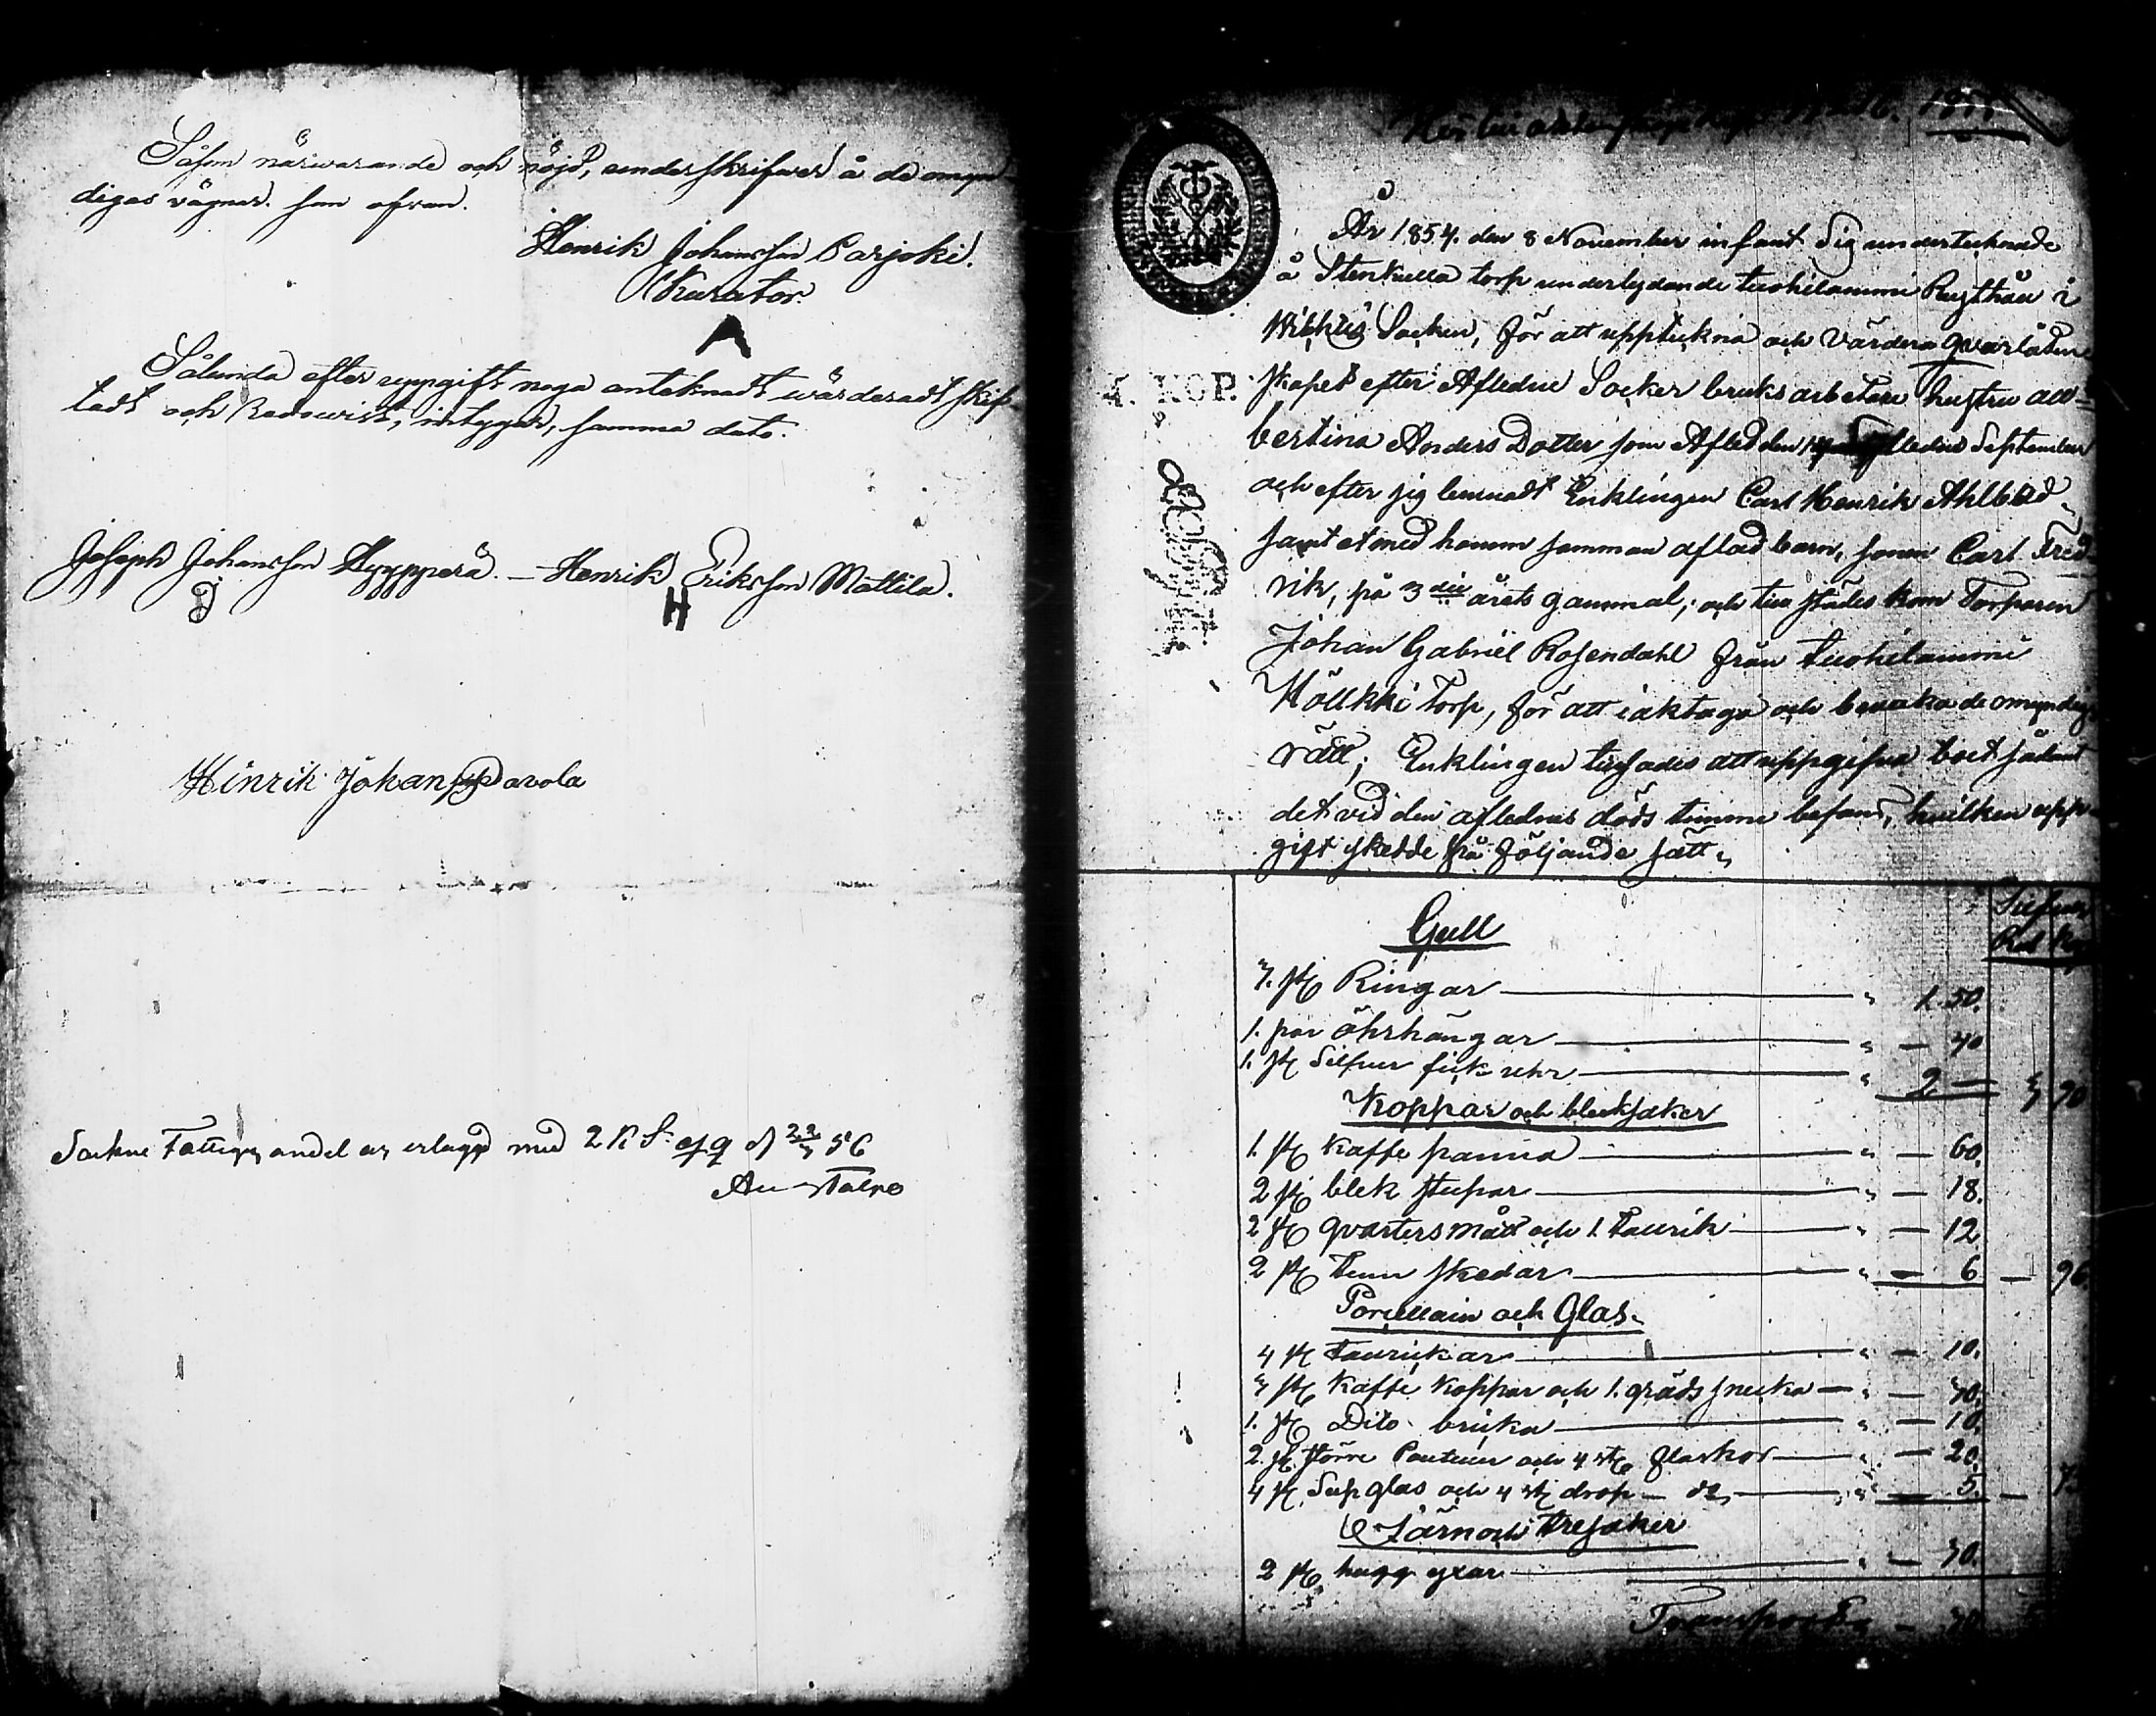 Såsom närwarande och nöjd, underskrifwer å de omyn-
digas vägnar. som ofvan.
Henrik Johansson Parjoki.
Kurator.
Sålunda efter uppgift noga anteknadt wärderadt skif-
tadt och Redowist, intygar, samma dato.
Joseph Johansson Hyyperä. — Henrik Eriksson Mattila.
Hinrik Johansson Pavola
Sockne Fattiges andel är erlagd med 2 K S. 56
År 1854. den 8 November infant Sig undertecknade
å Stenkulla torp underlydande tuohilammi Rusthåll i
Wichtis Socken, för att upptekna och Värdera qvarlåten
skapet efter Aflednе Socker bruks arbetare hustru all-
bertina Anders Dotter som Afled den September
och efter sig lemnadt Enklingen Carl Henrik Ahlblad
samt et med honom samman aflad barn, sonen Carl Fred-
rik, på 3die årets gammal, och till städes kom Torparen
Johan Gabriel Rosendahl från tuohilammi
Hölkki Torp, för att iaktaga och bevaka de omyndigas
rätt; Enklingen tillsades att uppgifva boet sådant
det vid den aflednes döds timme befans, hvilken upp-
gift skedde på följande sätt,
4. KOP.
Silfver
Rub Kop
Gull
3. st Ringar — " 1. 50.
1. par öhrhängar — " — 40
1. st Silfver fick uhr — " 2 — 3 90
Koppar och bleksaker
1. st Kaffe panna — " — 60.
2 st blek stupar — " — 18.
2 st qvarters mått och 1. Taurik — " — 12
2 st Tenn skedar — " — 6 — 96
Porcellain och Glas.
4 st Taurickar — " — 10.
3 st Kaffe Koppar och 1. grädsnecka — " — 30.
1. st Dito bricka — " — 10.
2. st större Pouteller och 4 st flaskor — " — 20.
4 st Supglas och 4 st drop — do — " — 5. —
Järn och Tresaker
2 st hugg yxar — " — 30.
Transport — 30.